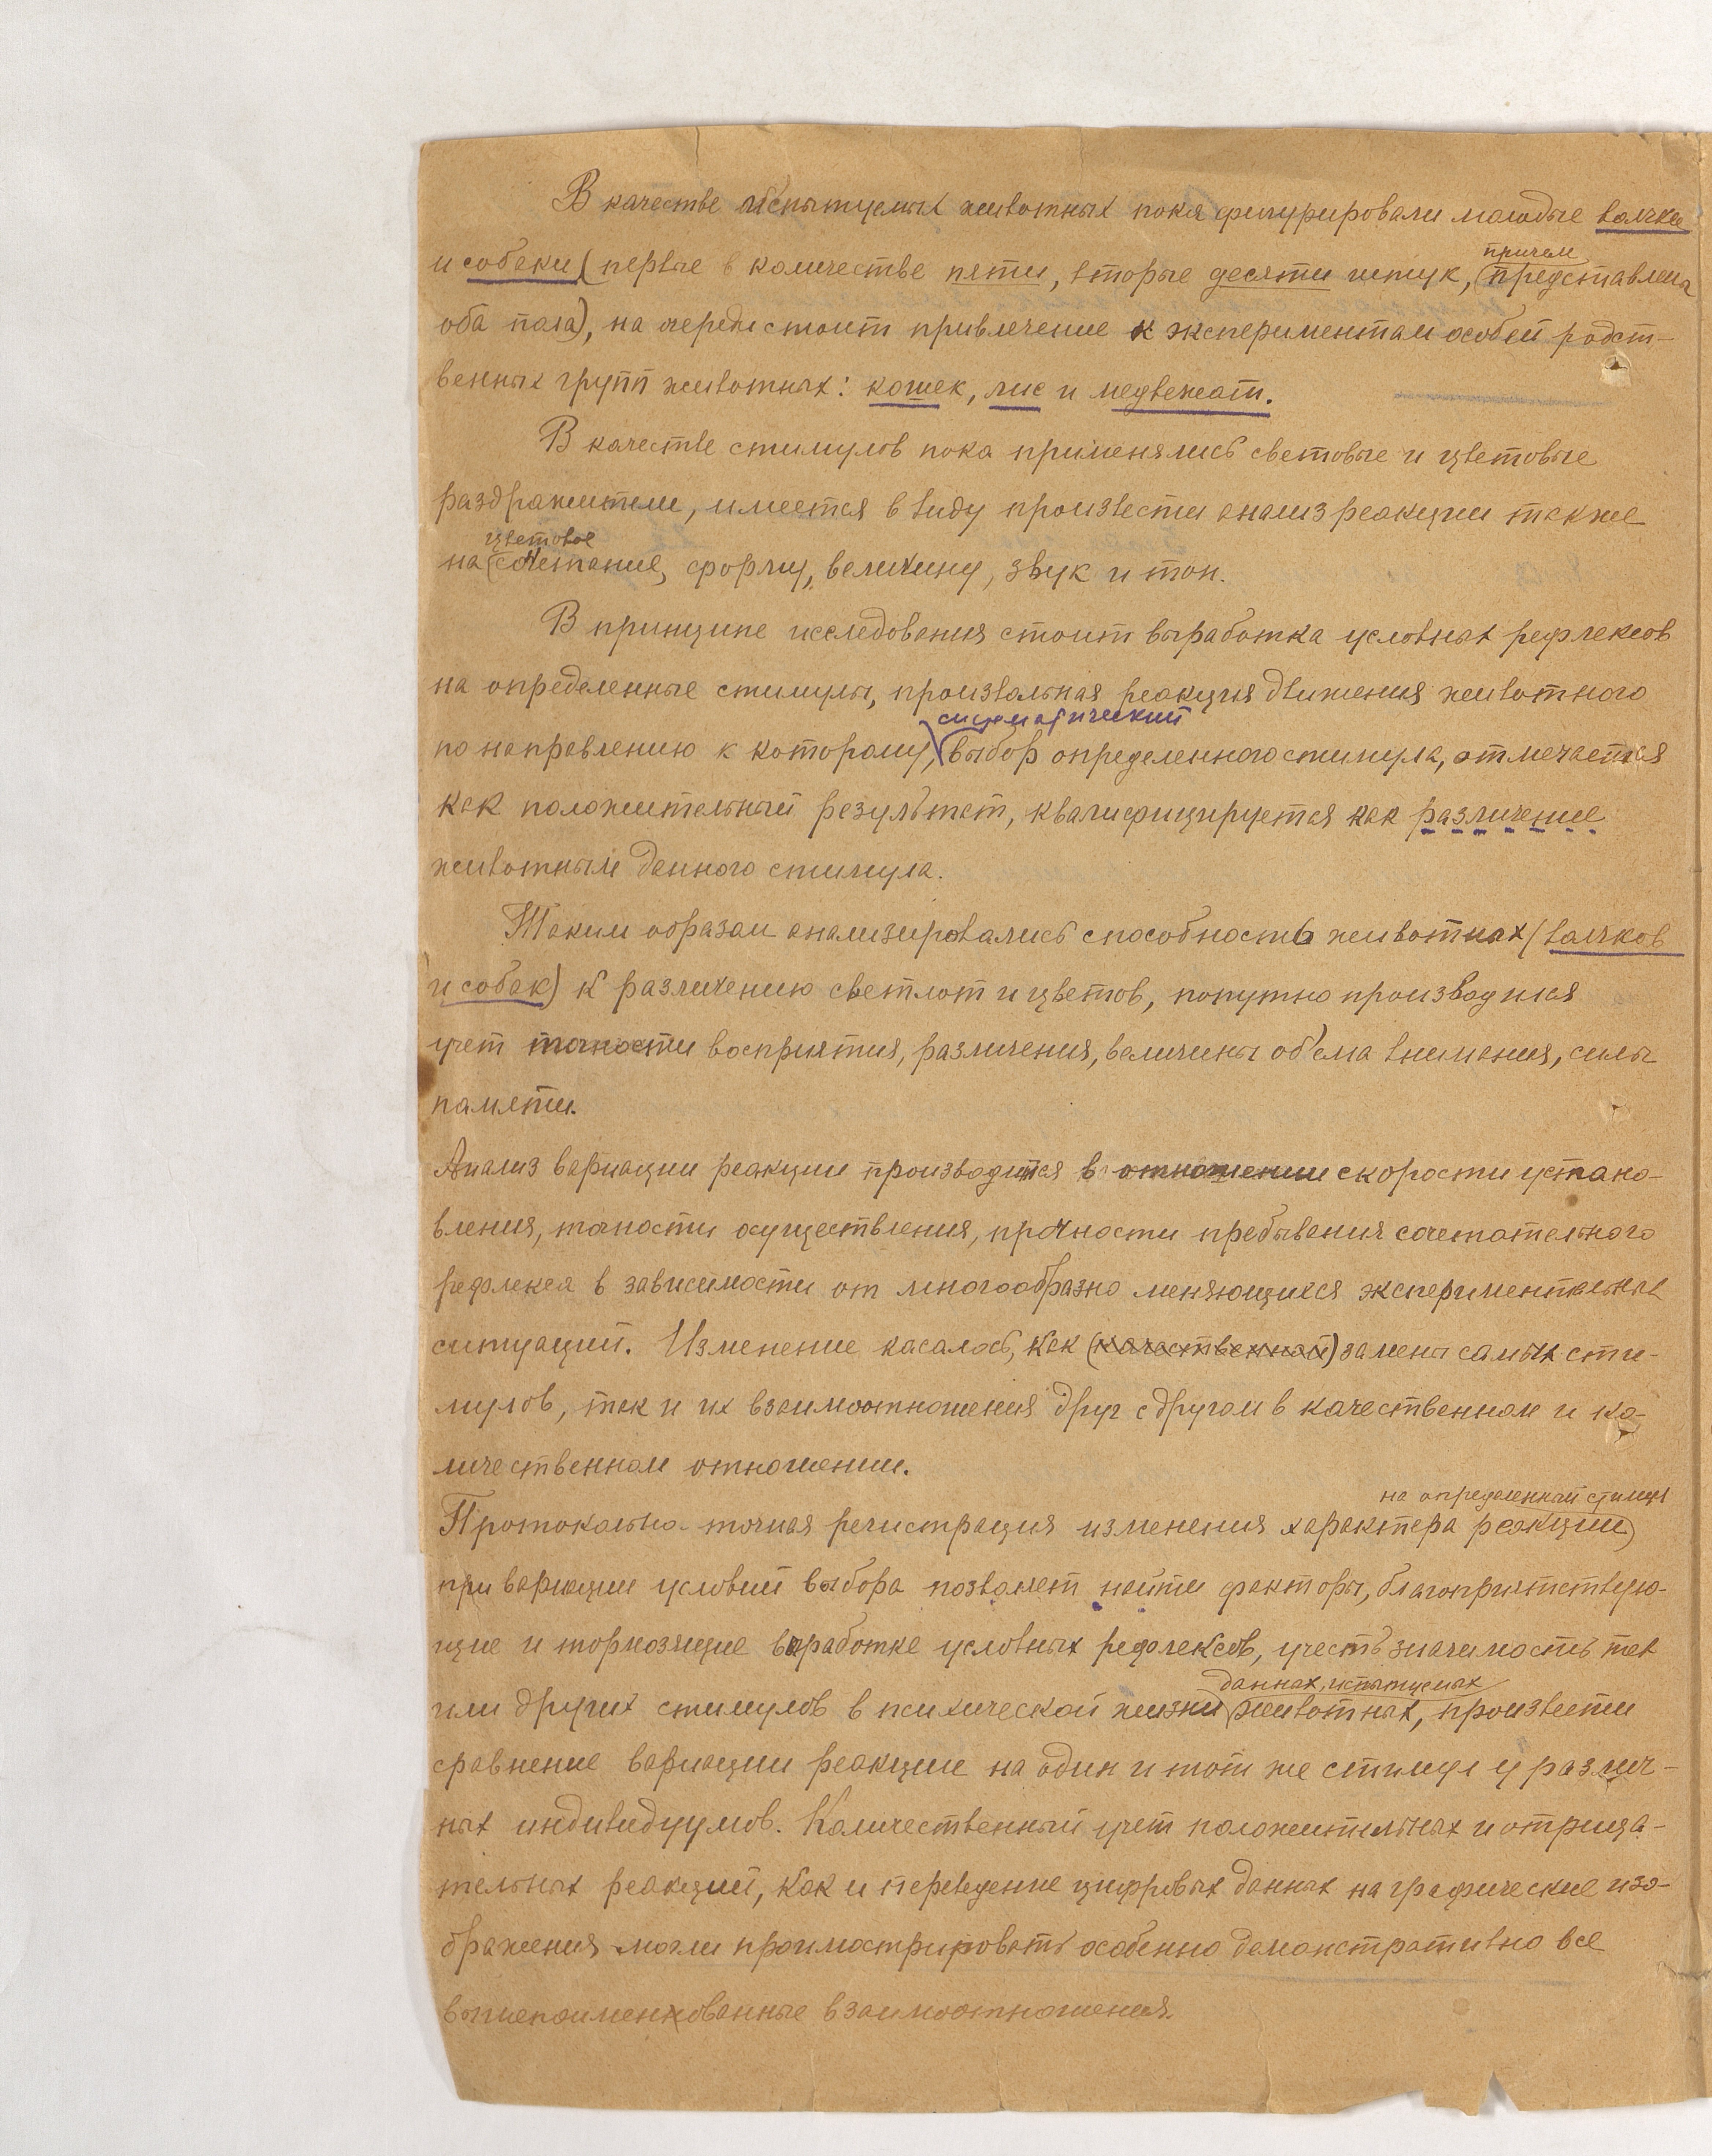 В качестве испытуемых животных пока фигурировали молодые волчки
и собаки (первые в количестве пяти, вторые десяти штук, причем представлены
оба пола), на череди стоит привлечение к экспериментам особей родст-
венных групп животных: кошек, лис и медвежат.
В качестве стимулов пока применялись световые и цветовые
раздражители, имеется в виду произвести анализ реакции также
на цветовое сочетание, форму, величину, звук и тон.
В принципе исследования стоит выработка условных рефлексов
на определенные стимулы, произвольная реакция движения животного
по направлению к которому, систематический выбор определенного стимула, отмечается
как положительный результат, квалифицируется как различение
животным данного стимула.
Таким образом анализировались способность животных (волчков
и собак) к различению светлот и цветов, попутно производился
учет точности восприятия, различения, величины об'ема внимания, силы
памяти.
Анализ вариации реакции производится в отношении скорости устано-
вления, точности осуществления, прочности пребывания сочетательного
рефлекса в зависимости от многообразно меняющихся экспериментальных
ситуаций. Изменение касалось, как (качественной) замены самых сти-
мулов, так и их взаимоотношения друг с другом в качественном и ко-
личественном отношении.
Протокольно-точная регистрация изменения характера реакции на определенный стимул
при вариации условий выбора позволяет найти факторы, благоприятствую-
щие и тормозящие выработке условных рефлексов, учесть значимость тех
или других стимулов в психической жизни данных, испытуемых животных, произвести
сравнение вариации реакции на один и тот же стимул у различ-
ных индивидуумов. Количественный учет положительных и отрица-
тельных реакций, как и переведение цифровых данных на графические изо-
бражения могли проиллюстрировать особенно демонстративно все
вышепоименованные взаимоотношения.